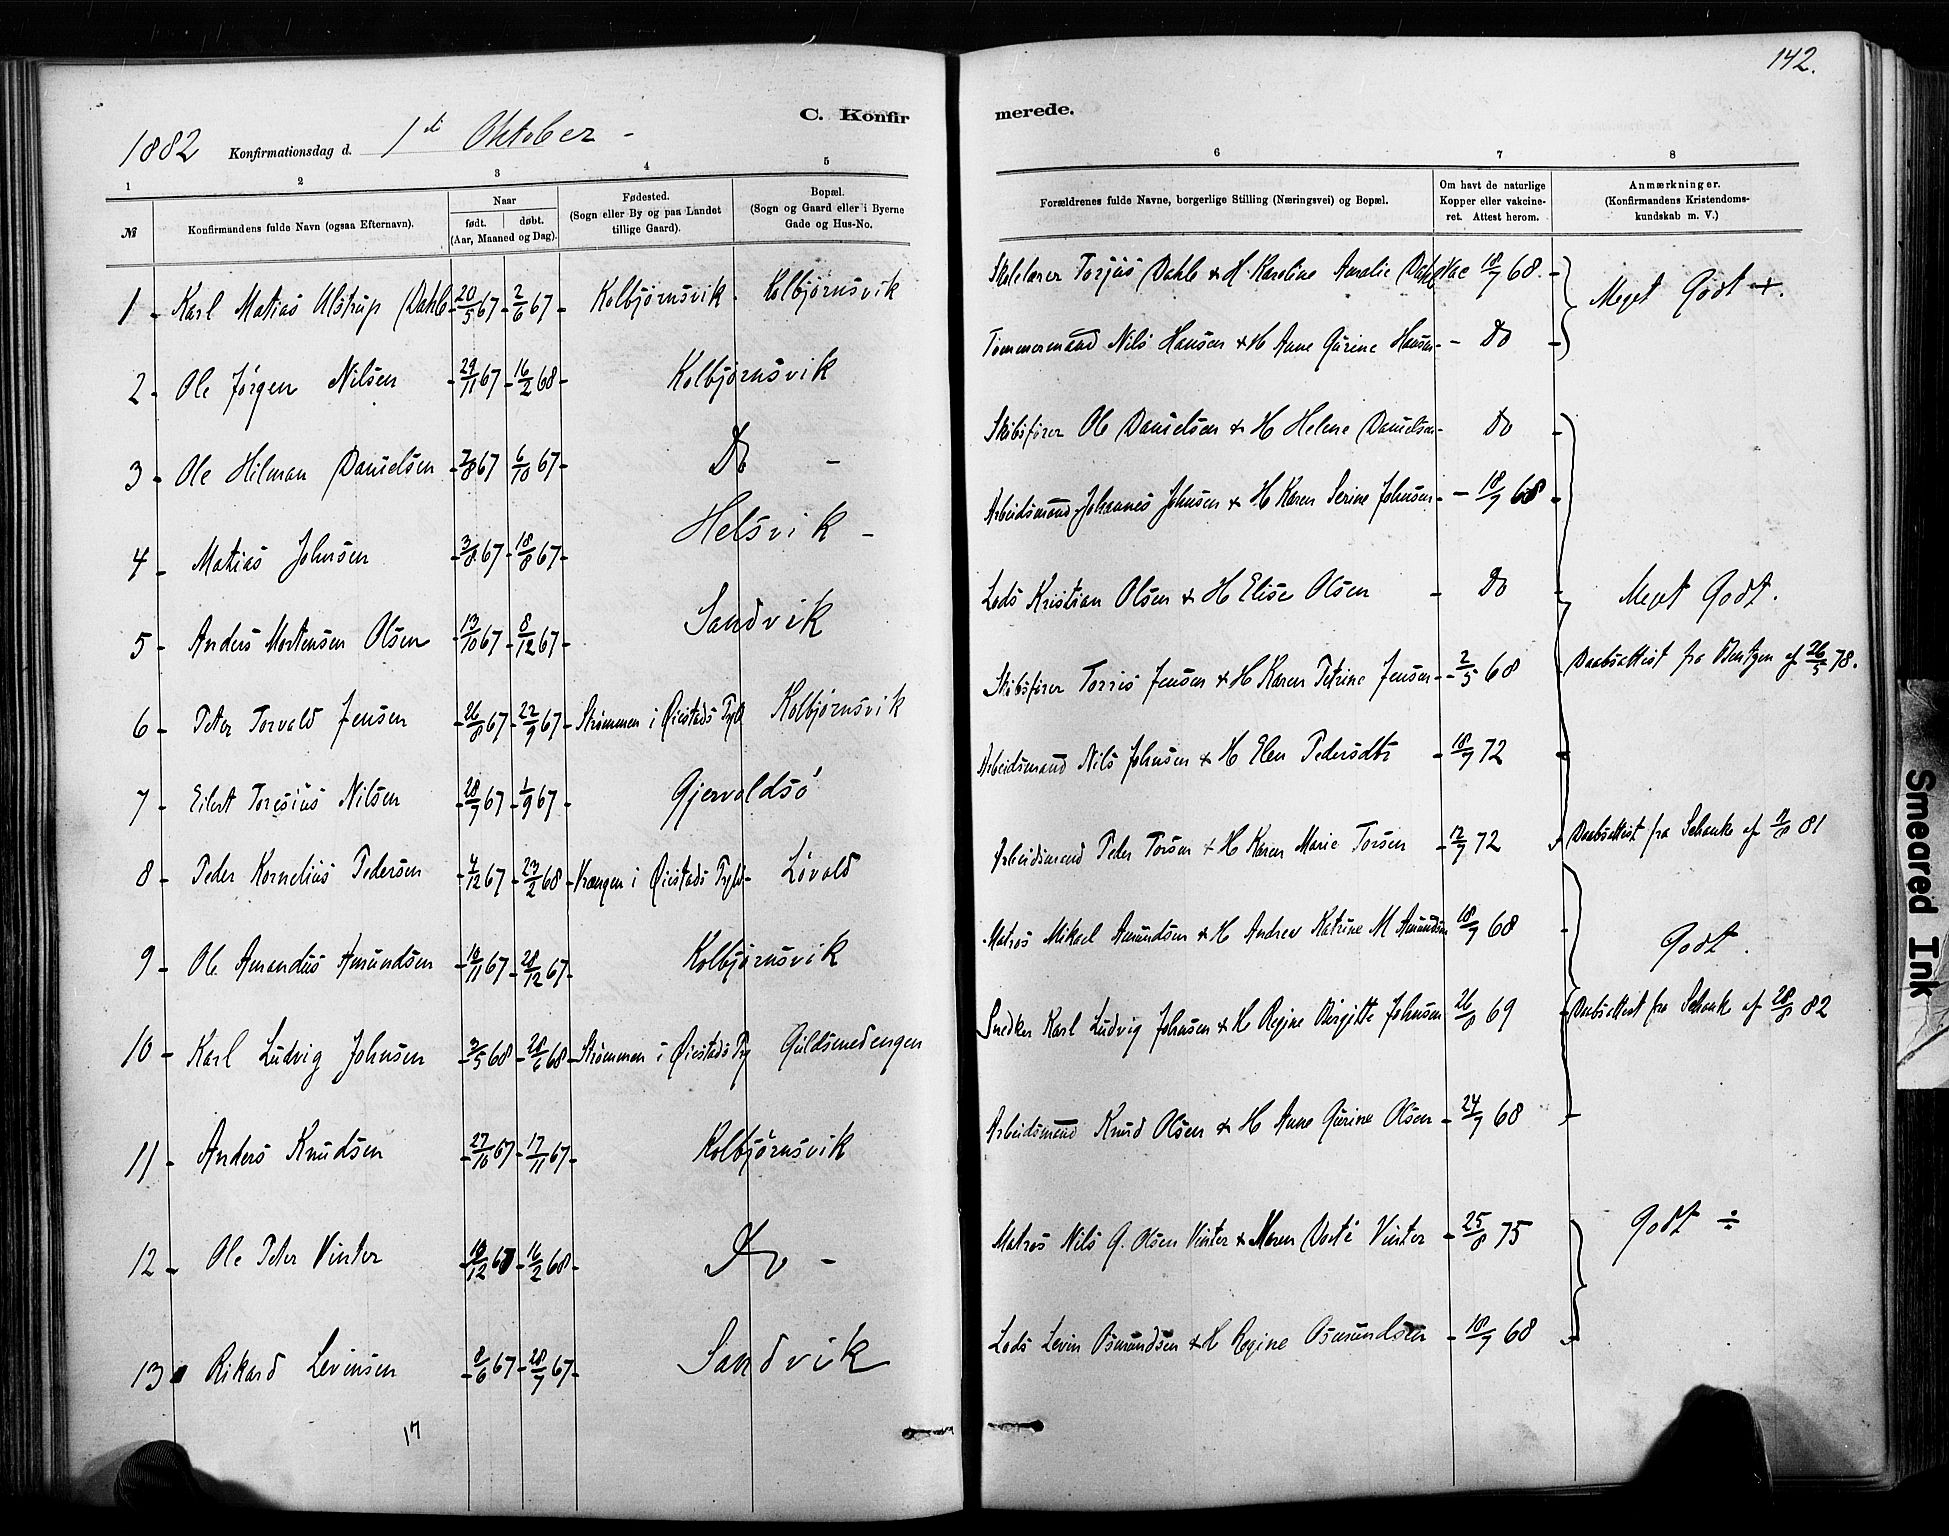 142.
C. Konfir merede.
1882 Konfirmationsdag d. 1ste Oktober -
1 2 3 4 5 6 7 8
№ Konfirmandens fulde Navn (ogsaa Efternavn). Naar født. døbt. (Aar, Maaned og Dag). Fødested. (Sogn eller By og paa Landet tillige Gaard). Bopæl. (Sogn og Gaard eller i Byerne Gade og Hus-No. Forældrenes fulde Navne, borgerlige Stilling (Næringsvei) og Bopæl. Om havt de naturlige Kopper eller vakcineret. Attest herom. Anmærkninger. (Konfirmandens Kristendomskundskab m. V.)
1 - Karl Matias Ulstrup (Dahl - 20/5 67 - 2/6 67 - Kolbjørnsvik - Kolbjørnsvik Skolelærer Torjus Dahl & H. Karoline Amalie Dahl Vac 18/7 68. - Meget Godt +.
2 - Ole Jørgen Nilsen - 29/11 67 - 16/2 68 - Kolbjørnsvik Tømmermand Nils Hansen & H Anne Gurine Hansen - - Do -
3 - Ole Hilman Danielsen - 7/8 67 - 6/10 67 - Do - Skibsfører Ole Danielsen & H Helene Danielsen - Do -
4 - Matias Johnsen - 3/8 67 - 18/8 67 - Helsvik - Arbeidsmand Johannes Johnsen & H Karen Serine Johnsen - - 18/7 68 -
5 - Anders Mortensen Olsen - 13/10 67 - 8/12 67 - Sandvik Lods Kristian Olsen & H Elise Olsen - Do - Meget Godt.
6 - Peter Torvald Jensen - 26/8 67 - 22/9 67 - Strømmen i Øiestads Prgld Kolbjørnsvik Skibsfører Torris Jensen & H Karen Petrine Jensen - 2/5 68 Daabsattest fra Bentzen af 26/5 78.
7 - Eilert Toresius Nilsen - 28/7 67 - 1/9 67 - Gjervoldsø Arbeidsmand Nils Johnsen & H Elen Pedersdtr - 18/7 72 -
8 - Peder Kornelius Pedersen - 4/12 67 - 23/2 68 - Vrængen i Øiestads Prgld - Løvold Arbeidsmand Peder Torsen & H Karen Marie Torsen - 12/7 72 - Daabsattest fra Schanke af 11/8 81
9 - Ole Amandus Amundsen - 18/11 67 - 28/12 67 - Kolbjørnsvik Matros Mikael Amundsen & H Andrea Katrine M Amundsen 18/7 68 - Godt.
10 - Karl Ludvig Johnsen - 3/5 68 - 28/6 68 - Strømmen i Øiestads Prg Guldsmedengen Snedker Karl Ludvig Johnsen & H Regine Birgitte Johnsen 26/8 69 - Daabsattest fra Schanke af 28/8 82
11 - Anders Knudsen - 27/10 67 - 17/11 67 - Kolbjørnsvik Arbeidsmand Knud Olsen & H Anne Gurine Olsen - 24/7 68 -
12 - Ole Peter Vinter - 18/12 67 - 16/2 68 - Do - Matros Nils G. Olsen Vinter & Maren Dorte Vinter - 25/8 75 Godt ÷
13 Rikard Levinsen - 8/6 67 - 28/7 67 - Sandvik Lods Levin Osmundsen & H Regine Osmundsen - 18/7 68 -
17
Smeared Ink